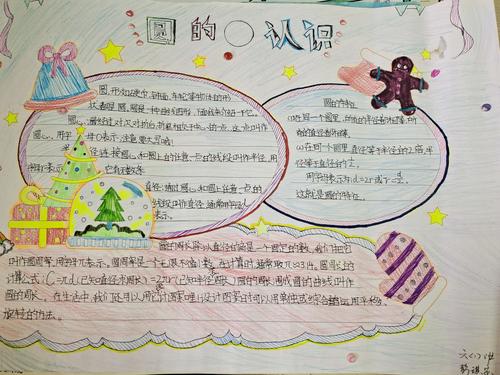 圆的○认识
圆,形如硬币、钟面、车轮等物体的形
状都是圆,圆是一种曲线图形,下面我来介绍一下它。
圆心:
圆心,用字母O表示,注意要大写哦!
半径:连接圆心和圆上的任意一点的线段叫作半径,用
字母r表示,它有无数条
直径:通过圆心和圆上任意一点的
线段叫作直径,通常用字母d
表示。
圆的特征
(1)在同一个圆里,所有的半径都相等,所
有的直径都相等。
(2)在同一个圆里直径等于半径的2倍,半
径等于直径的1/2。
用字母表示为d=2r或r=d/2。
这就是圆的特征。
圆的周长除以直径的商是一个固定的数,我们把它
叫作圆周率,用字母π表示。圆周率是一个无限不循环小数,在计算时,通常取π≈3.14。圆周长的
计算公式:C=πd(已知直径求周长)=2πr(已知半径求周长)圆的周长:围成圆的曲线叫作
圆的周长。在生活中,我们还可以用圆计图案哦!设计图案时可以用单一或综合用平移、
旋转的方法。
六(1)班